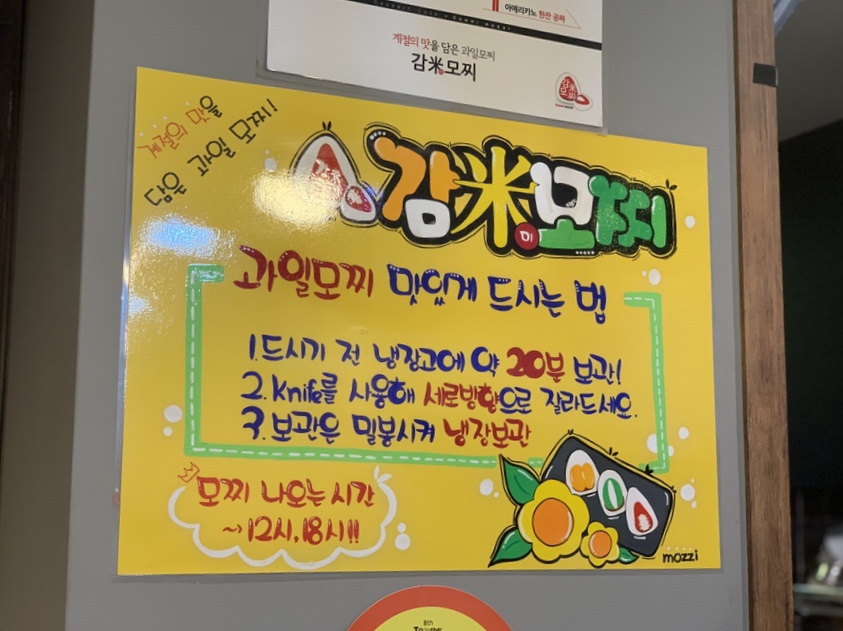 아메리카노 한잔 공짜
계절의 맛을 담은 과일모찌
감米모찌
계절의 맛을
담은 과일 모찌!
감米모찌
미
과일모찌 맛있게 드시는 법
1. 드시기 전 냉장고에 약 20분 보관!
2. Knife를 사용해 세로방향으로 잘라드세요.
3. 보관은 밀봉시켜 냉장보관
모찌 나오는 시간
~12시, 18시!!
mozzi
8th